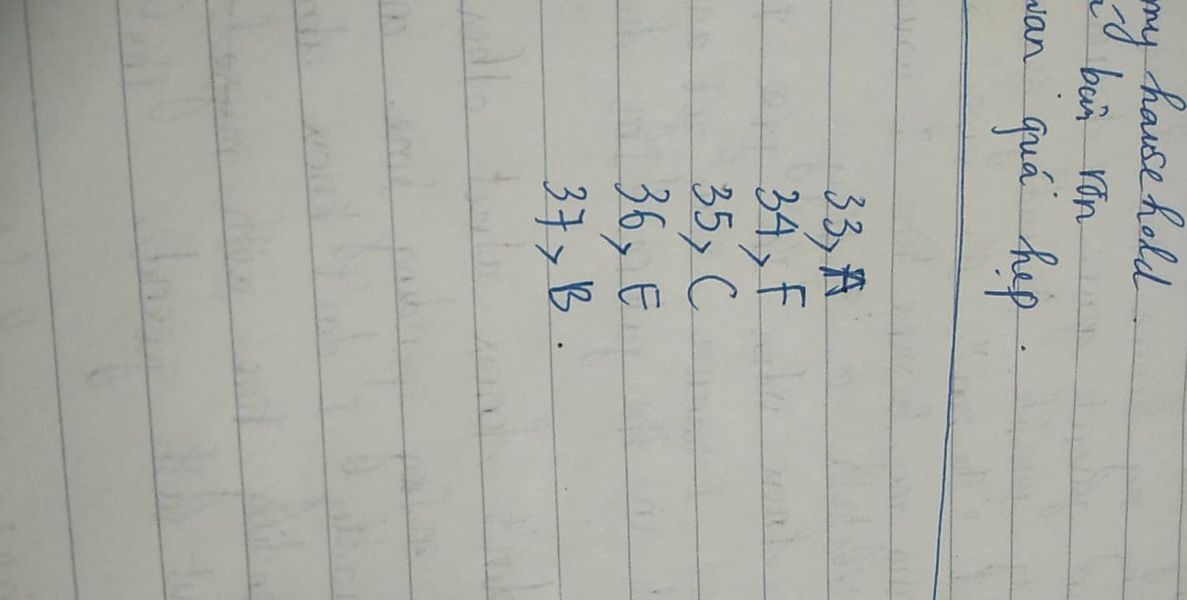 my household.
bủn rủn
quá hẹp.
33, A
34, F
35, C
36, E
37, B.